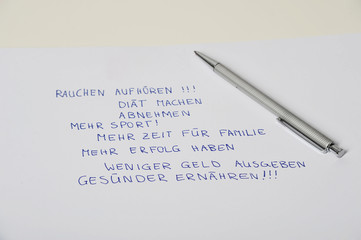 RAUCHEN AUFHÜREN !!!
DIÄT MACHEN
ABNEHMEN
MEHR SPORT!
MEHR ZEIT FÜR FAMILIE
MEHR ERFOLG HABEN
WENIGER GELD AUSGEBEN
GESÜNDER ERNÄHREN!!!